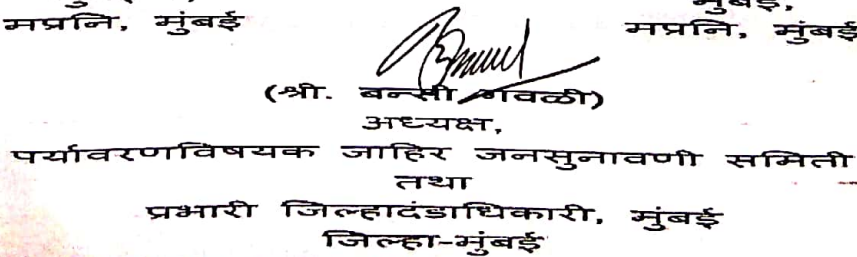 मुंबई,
मप्रनि, मुंबई
मप्रनि, मुंबई
(श्री. बन्सी गवळी)
अध्यक्ष,
पर्यावरणविषयक जाहिर जनसुनावणी समिती
तथा
प्रभारी जिल्हादंडाधिकारी, मुंबई
जिल्हा-मुंबई